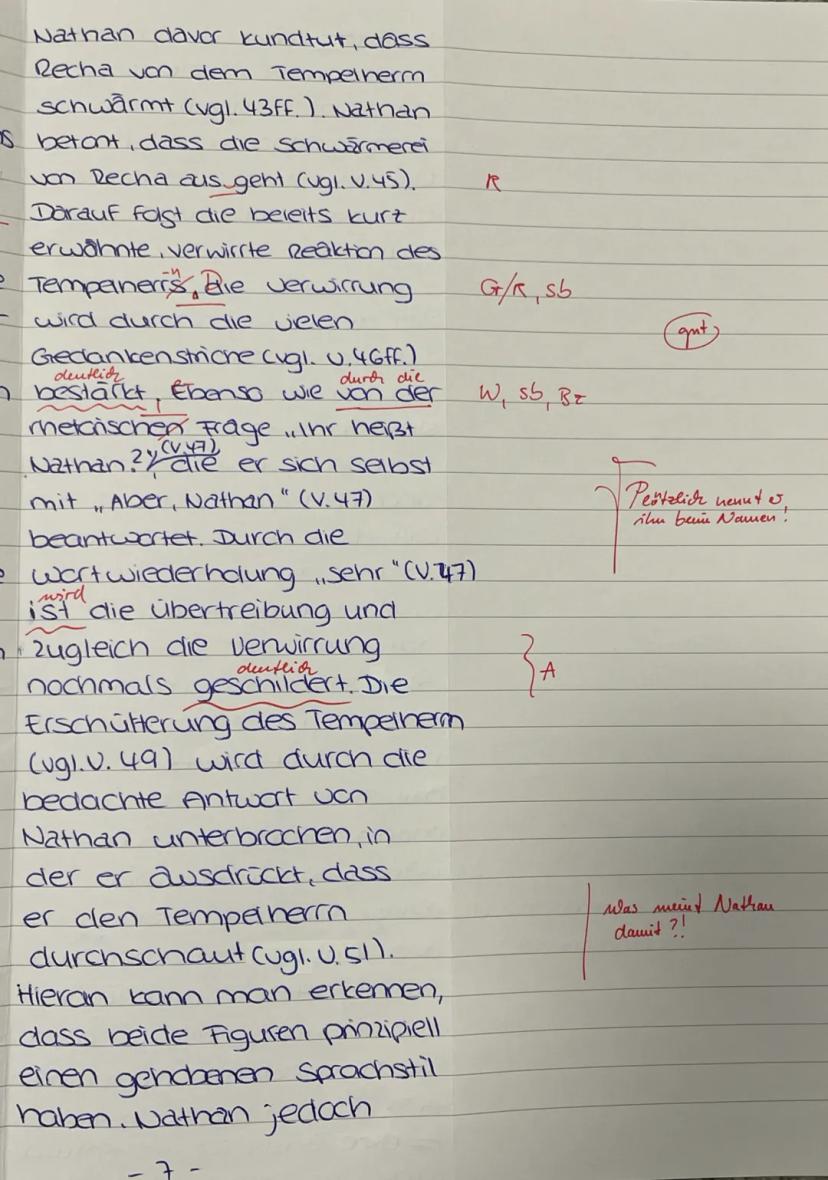 Nathan davor kundtut, dass
Recha von dem Tempelherrn
schwärmt (vgl. 43ff.). Nathan
betont, dass die Schwärmerei
von Recha aus geht (vgl. V. 45). R
Darauf folgt die bereits kurz
erwähnte, verwirrte Reaktion des
Tempelherrs, Die Verwirrung G/R, sb
-n
wird durch die vielen
gut
Gedankenstriche (vgl. V. 46ff.)
deutlich durch die
bestärkt, Ebenso wie von der W, sb, Bz
rhetorischen Frage „Ihr heißt
Nathan?" (V. 47) die er sich selbst
mit „Aber, Nathan" (V. 47)
Plötzlich nennt er
ihn beim Namen!
beantwortet. Durch die
Wortwiederholung „sehr" (V. 47)
wird
ist die Übertreibung und
zugleich die Verwirrung
A
deutlich
nochmals geschildert. Die
Erschütterung des Tempelherrn
(vgl. V. 49) wird durch die
bedachte Antwort von
Nathan unterbrochen, in
der er ausdrückt, dass
er den Tempelherrn
Was meint Nathan
damit?!
durchschaut (vgl. V. 51).
Hieran kann man erkennen,
dass beide Figuren prinzipiell
einen gehobenen Sprachstil
haben. Nathan jedoch
- 7 -